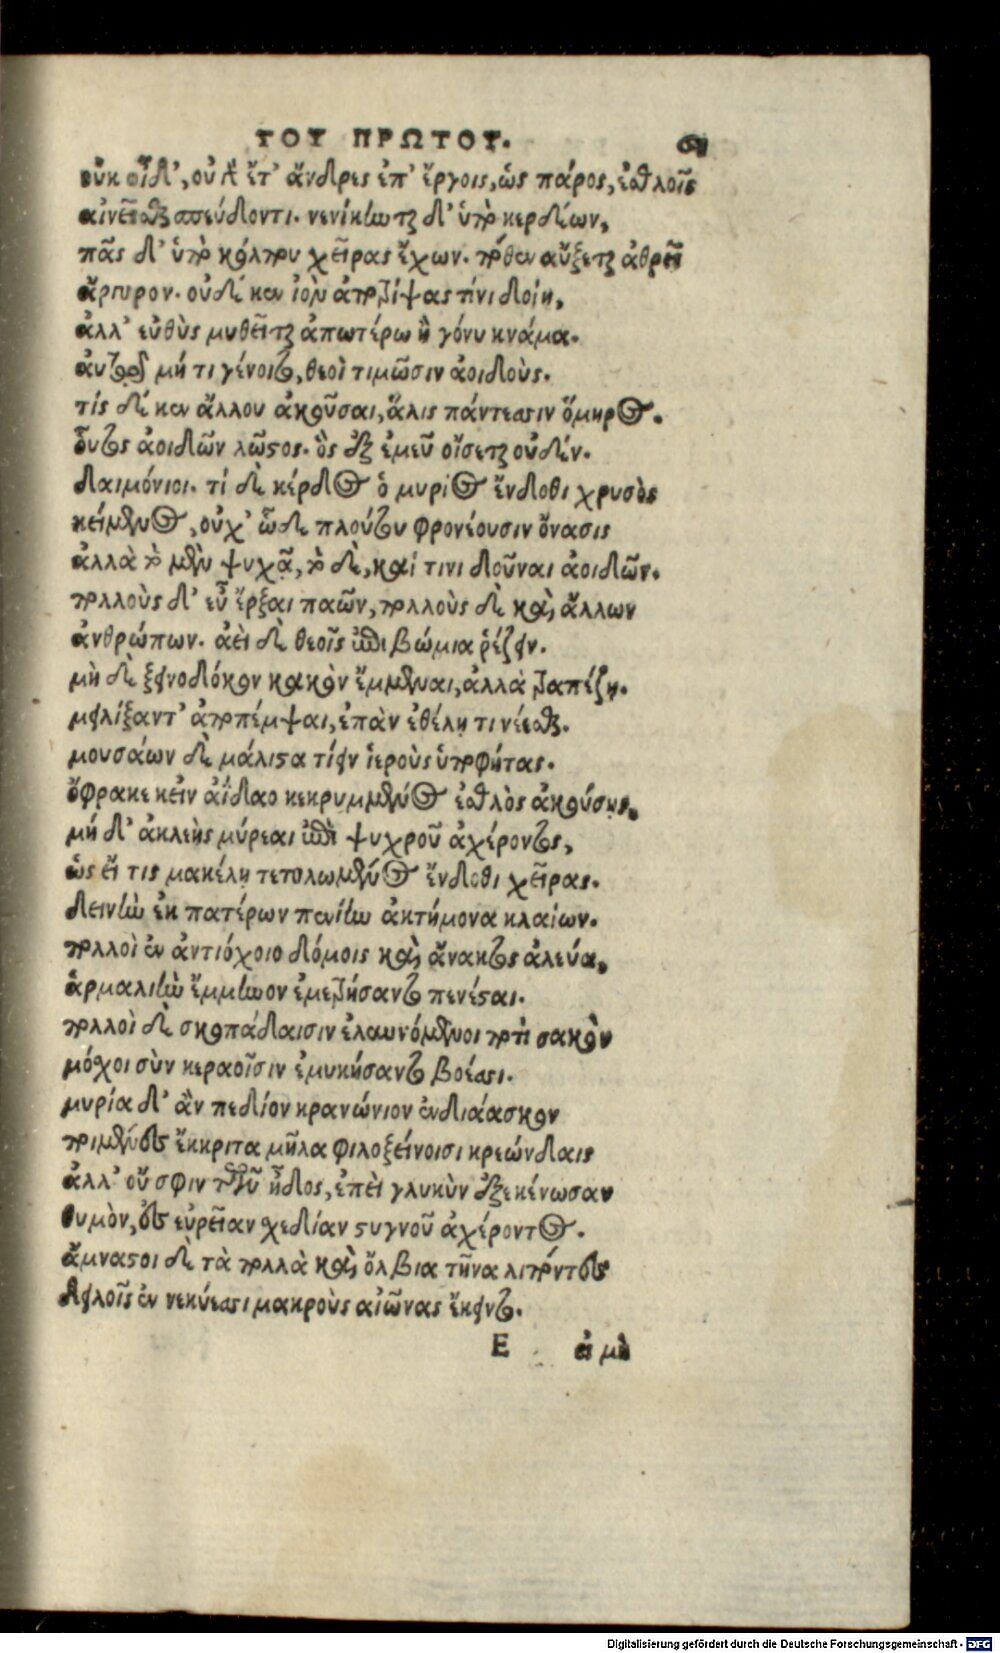 ΤΟΥ ΠΡΩΤΟΥ.
οὐκ οἶδ', οὐ γὰρ ἔτ' ἄνδρες ἐπ' ἔργοις, ὡς πάρος, ἐσθλοῖς
αἰνεῖσθαι σπεύδοντι. νενίκηνται δ' ὑπὸ κερδέων,
πᾶς δ' ὑπὸ κόλπου χεῖρας ἔχων. πόθεν αὔξεται ἀθρεῖ
ἄργυρον. οὐδέ κεν ἰὸν ἀποτρίψας τινι δοίη,
ἀλλ' εὐθὺς μυθεῖται ἀπωτέρω ἢ γόνυ κνάμα.
αὐτῷ μή τι γένοιτο, θεοὶ τιμῶσιν ἀοιδοὺς.
τίς δέ κεν ἄλλου ἀκοῦσαι, ἅλις πάντεσσιν ὅμηρος.
οὗτος ἀοιδῶν λῶστος. ὃς ἐξ ἐμεῦ οἴσεται οὐδέν.
δαιμόνιοι. τί δὲ κέρδος ὁ μυρίος ἔνδοθι χρυσὸς
κείμενος, οὐχ' ὧδε πλούτου φρονέουσιν ὄνασις
ἀλλὰ τὸ μὲν ψυχᾷ, τὸ δὲ, καί τινι δοῦναι ἀοιδῶν.
πολλοὺς δ' εὖ ἔρξαι παῶν, πολλοὺς δὲ καὶ ἄλλων
ἀνθρώπων. ἀεὶ δὲ θεοῖς ἐπι βώμια ῥέζειν.
μὴ δὲ ξεινοδόκον κακὸν ἔμμεναι, ἀλλὰ τραπέζῃ.
μειλίξαντ' ἀποπέμψαι, ἐπὰν ἐθέλῃ τι νέεσθαι.
μουσάων δὲ μάλιστα τίειν ἱεροὺς ὑποφήτας.
ὄφρακε κεῖν ἀΐδαο κεκρυμμένος ἐσθλὸς ἀκούσῃς,
μή δ' ἀκλεὴς μύρεαι ἐπὶ ψυχροῦ ἀχέροντος,
ὡς εἴ τις μακέλῃ τετυλωμένος ἔνδοθι χεῖρας.
δεινὴν ἐκ πατέρων πενίην ἀκτήμονα κλαίων.
πολλοὶ ἐν ἀντιόχοιο δόμοις καὶ ἄνακτος ἀλεύα,
ἁρμαλιὴν ἔμμηνον ἐμετρήσαντο πενέσται.
πολλοὶ δὲ σκοπάδαισιν ἐλαυνόμενοι ποτὶ σακὸν
μόχοι σὺν κεραοῖσιν ἐμυκήσαντο βοέσσι.
μυρία δ' ἂν πεδίον κρανώνιον ἐνδιάασκον
ποιμένες ἔκκριτα μῆλα φιλοξείνοισι κρεώνδαις
ἀλλ' οὔ σφιν τῶν ἦδος, ἐπεὶ γλυκὺν ἐξεκένωσαν
θυμὸν, ἐς εὐρεῖαν χεδίαν στυγνοῦ ἀχέροντος.
ἄμναστοι δὲ τὰ πολλὰ καὶ ὄλβια τῆνα λιπόντες
δειλοῖς ἐν νεκύεσσι μακροὺς αἰῶνας ἔκειντο.
E εἰ μὴ
Digitalisierung gefördert durch die Deutsche Forschungsgemeinschaft - DFG